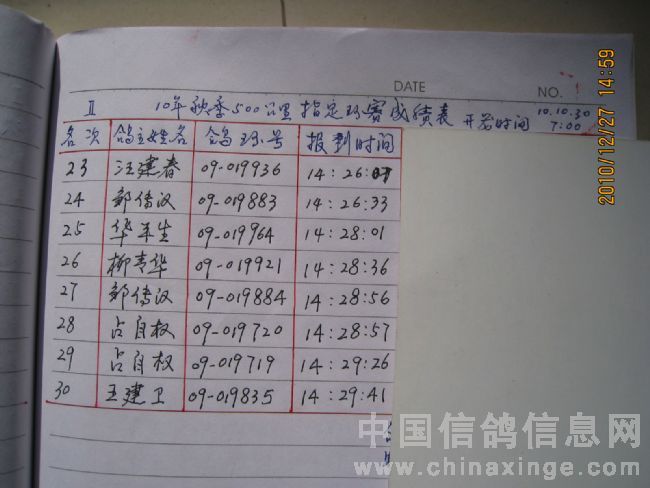 DATE
NO. 1
II 10年秋季500公里指定环赛成绩表 开笼时间 10.10.30 7:00
名次 鸽主姓名 鸽环号 报到时间
23 汪建春 09-019936 14:26:07
24 郭传汉 09-019883 14:26:33
25 华平生 09-019964 14:28:01
26 柳青华 09-019921 14:28:36
27 郭传汉 09-019884 14:28:56
28 占自权 09-019720 14:28:57
29 占自权 09-019719 14:29:26
30 王建卫 09-019835 14:29:41
2010/12/27 14:59
中国信鸽信息网
www.chinaxinge.com